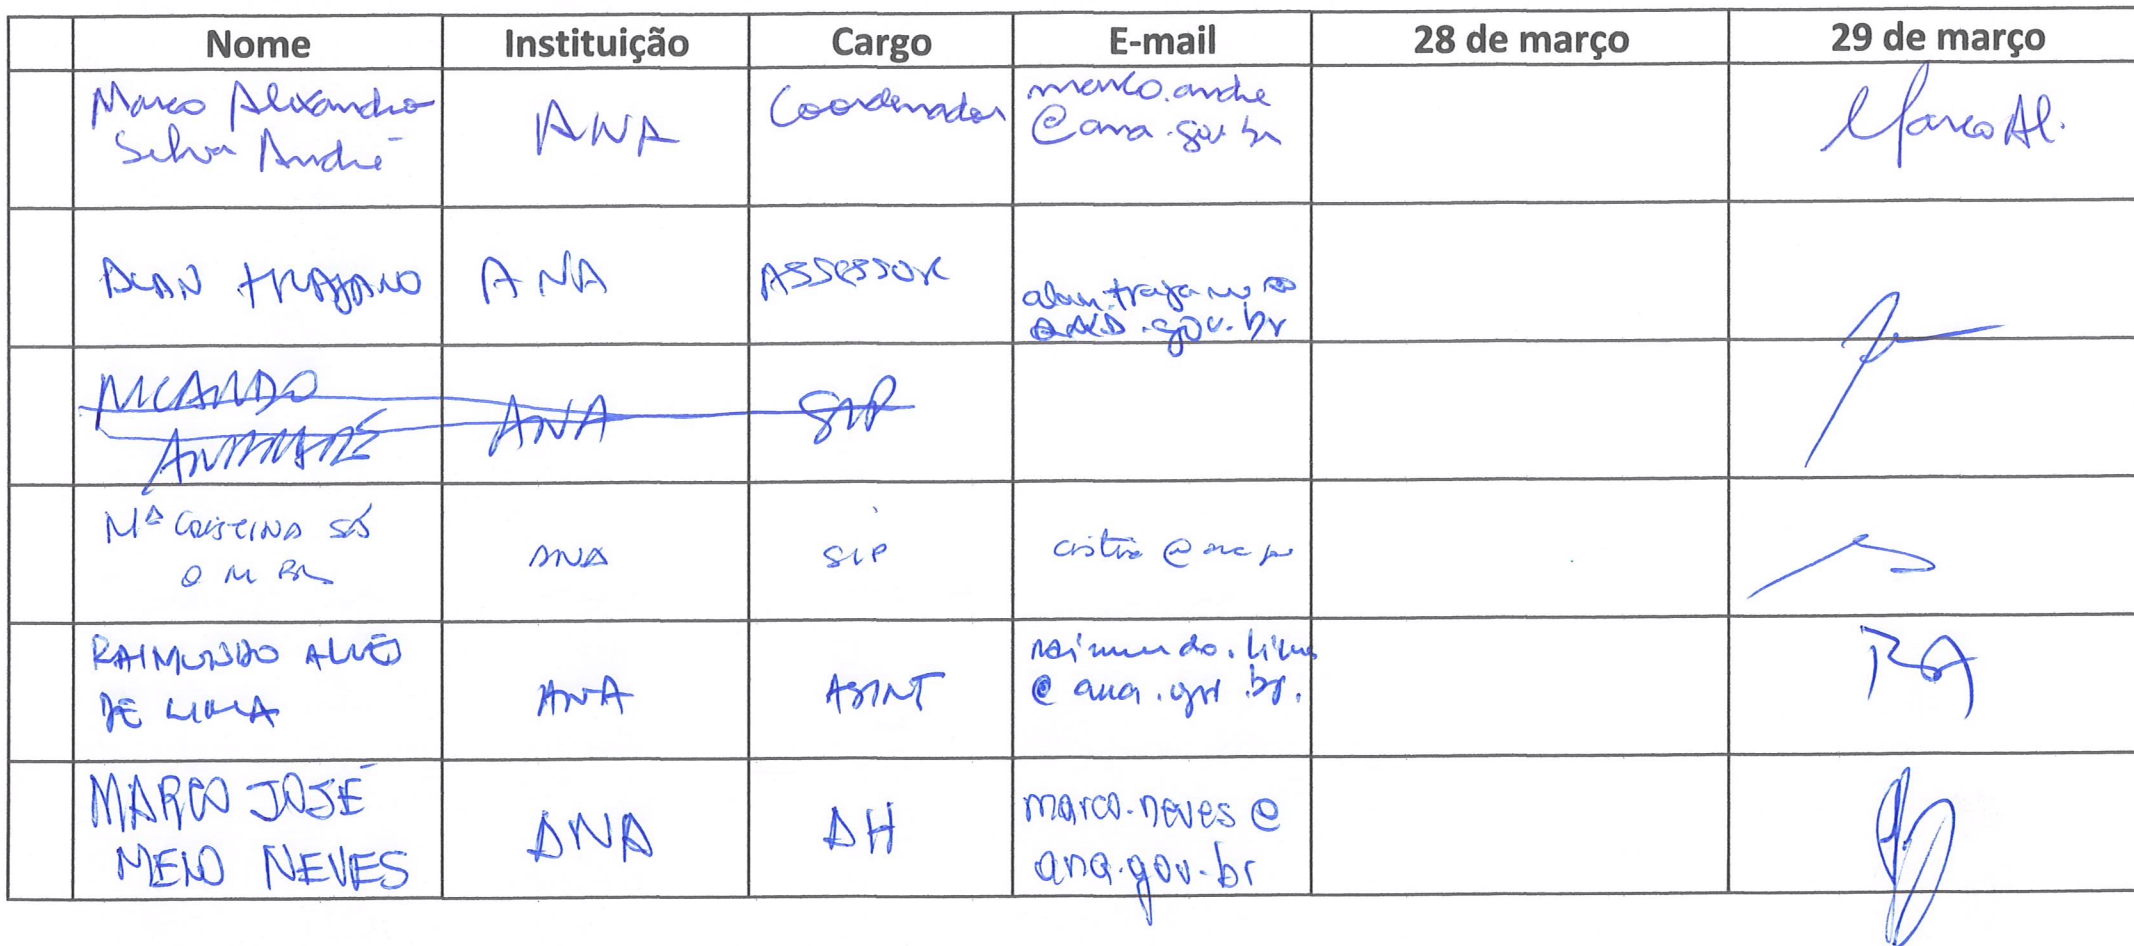 Nome Instituição Cargo E-mail 28 de março 29 de março
Marco Alexandro
Silva André
ANA
Coordenador
marco.andre
@ana.gov.br
Marco Al.
ALAN TRAJANO
ANA
ASSESSOR
alan.trajano@
ANA.gov.br
ANA
SIP
Mª CRISTINA SÁ
ANA
SIP
RAIMUNDO ALVES
DE LIMA
ANA
ASINT
raimundo.lima
@ana.gov.br.
RA
MARCO JOSÉ
MELO NEVES
ANA
AH
marco.neves@
ana.gov.br